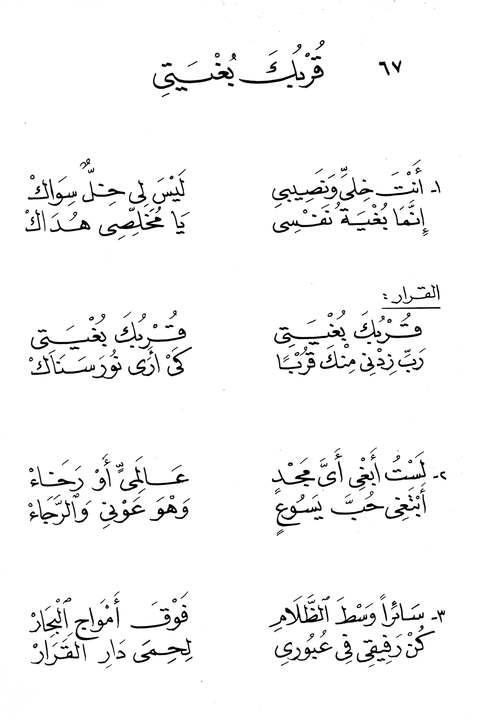 ٦٧ قُرْبُكَ بُغْيَتِي
١- أَنْتَ خِلِّي وَنَصِيبِي لَيْسَ لِي خِلٌّ سِوَاكْ
إِنَّمَا بُغْيَةُ نَفْسِي يَا مُخَلِّصِي هُدَاكْ
القرار:
قُرْبُكَ بُغْيَتِي قُرْبُكَ بُغْيَتِي
رَبِّ زِدْنِي مِنْكَ قُرْبًا كَيْ أَرَى نُورَ سَنَاكْ
٢- لَسْتُ أَبْغِي أَيَّ مَجْدٍ عَالَمِيٍّ أَوْ رَخَاءْ
أَبْتَغِي حُبَّ يَسُوعٍ وَهْوَ عَوْنِي وَالرَّجَاءْ
٣- سَائِرًا وَسْطَ الظَّلَامِ فَوْقَ أَمْوَاجِ الْبِحَارْ
كُنْ رَفِيقِي فِي عُبُورِي لِحِمَى دَارِ القَرَارْ